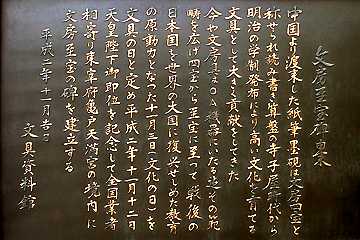 文房至宝碑文案
中国より渡来した紙筆墨硯は文房四宝と
称せられ読み書き算盤の寺子屋時代から
明治の学制発布により高い文化を育てる
文具として大きく貢献をしてきた
今や文房具はOA機器にいたる迄その範
疇を広げ四宝から至宝に至って戦後の
日本国を世界の大国に復興せしめた教育
の原動力となつた十一月三日(文化の日)を
文具の日と定め平成二年十一月十二日
天皇陛下御即位を記念して全国業者
相寄り東宰府亀戸天満宮の境内に
文房至宝の碑を建立する
平成二年十一月吉日
文具資料館